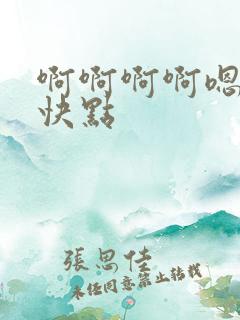 啊啊啊啊嗯
快點
張思佳
未经同意禁止转载